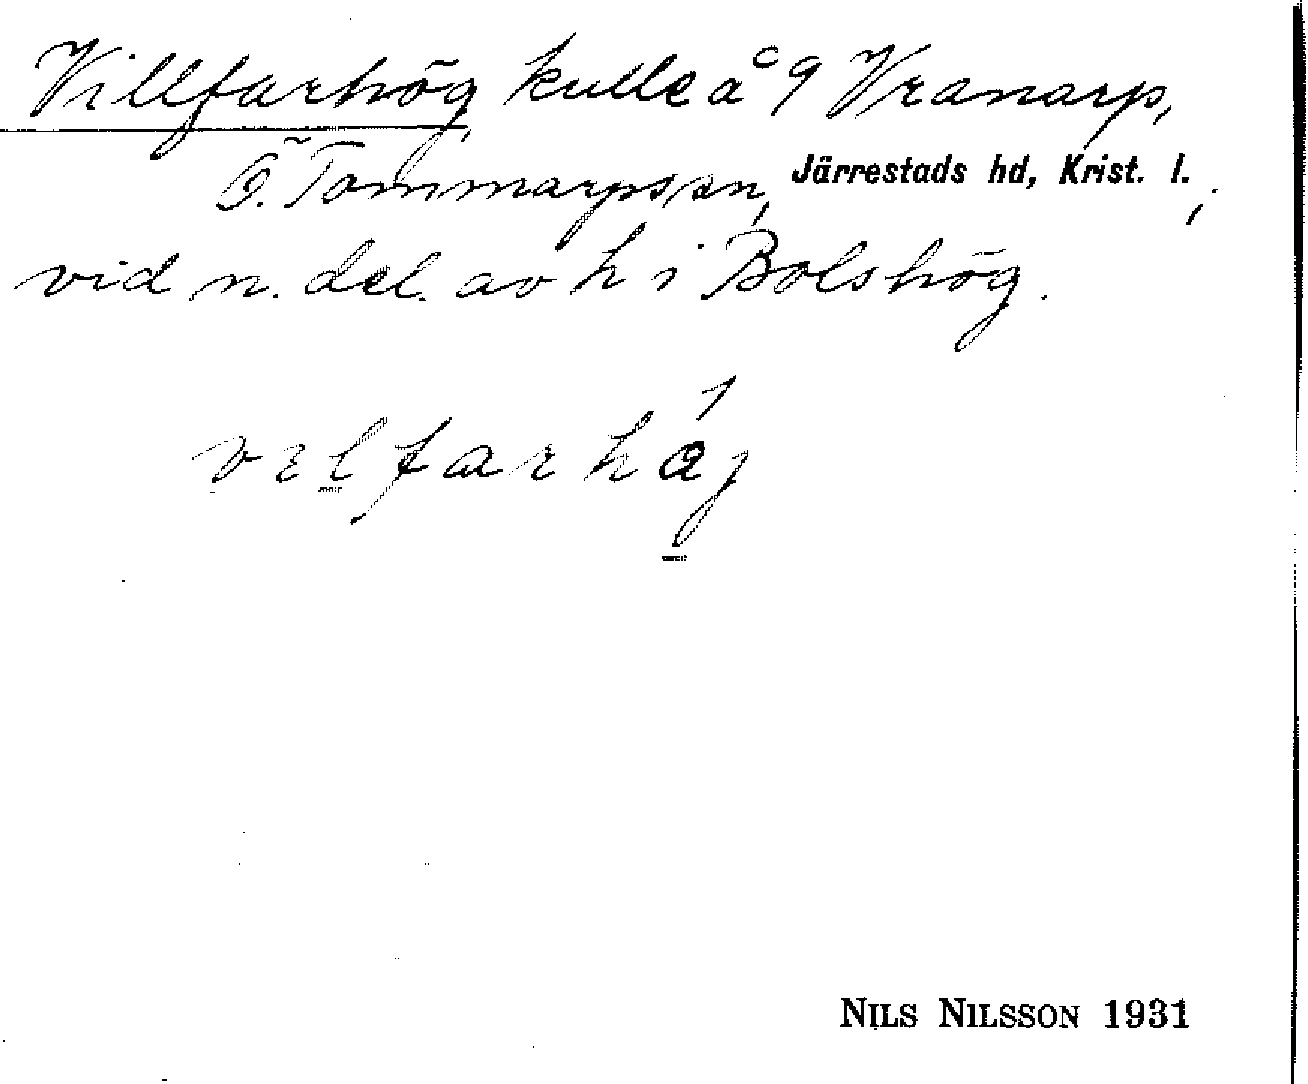 Villfarhög kulle å 9 Vranarp,
Ö. Tommarps sn, Järrestads hd, Krist. l.;
vid n. del. av h i Bolshög.
NILS NILSSON 1931